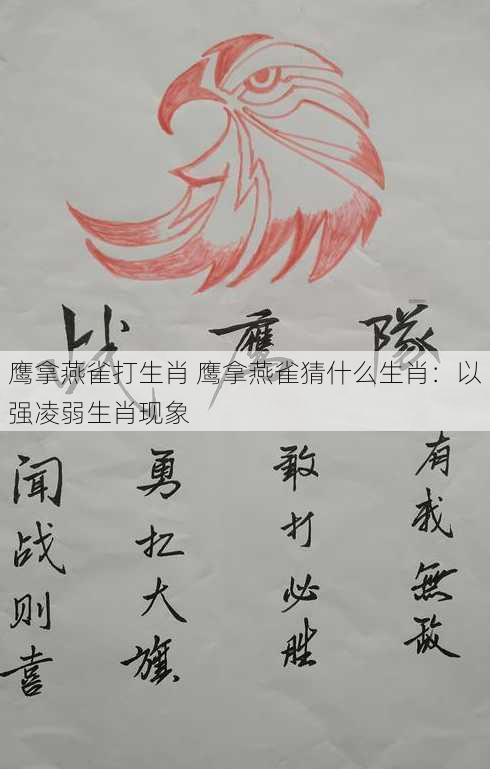 战鹰隊
鹰拿燕雀打生肖 鹰拿燕雀猜什么生肖：以
强凌弱生肖现象
闻战则喜
勇扛大旗
敢打必胜
有我無敌